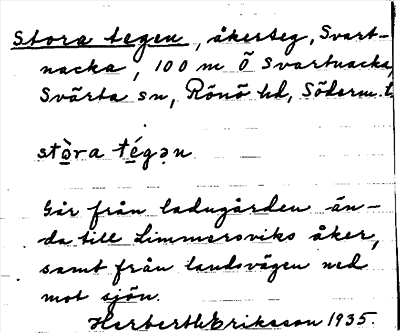 Stora tegen, åkerteg, Svart-
nacka, 100 m Ö Svartnacka,
Svärta sn, Rönö hd, Söderm. l.
stò̱ra té̱gən
Går från ladugården än-
da till Limmersviks åker,
samt från landsvägen ned
mot sjön.
Herbert Eriksson 1935.